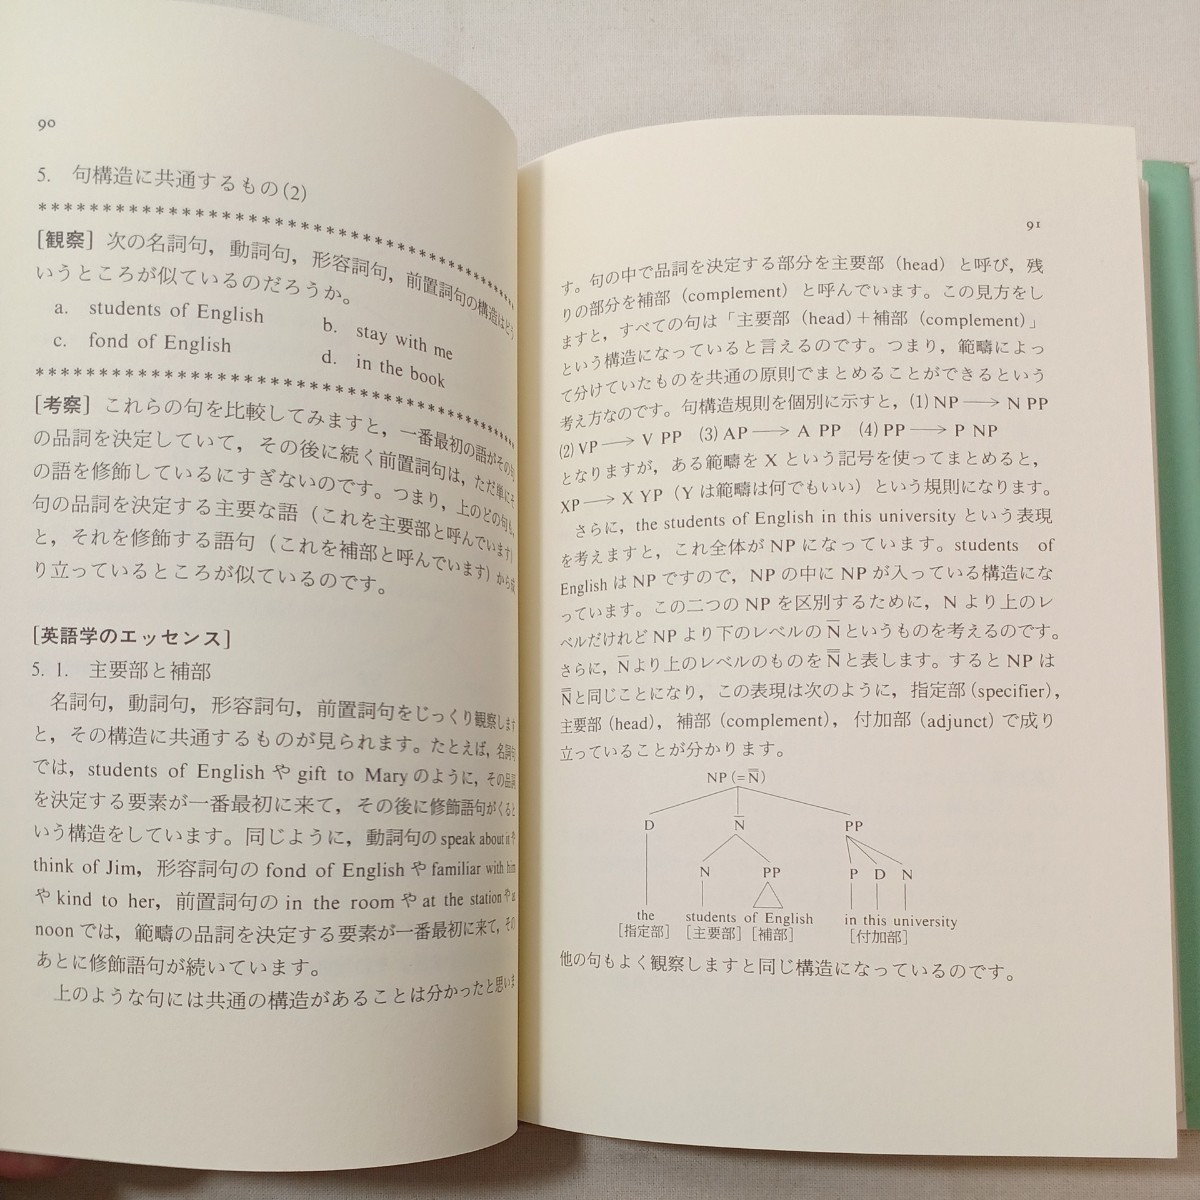 90
5. 句構造に共通するもの(2)
************************************
[観察] 次の名詞句，動詞句，形容詞句，前置詞句の構造はどう
いうところが似ているのだろうか。
a. students of English
b. stay with me
c. fond of English
d. in the book
************************************
[考察] これらの句を比較してみますと，一番最初の語がその句
の品詞を決定していて，その後に続く前置詞句は，ただ単にそ
の語を修飾しているにすぎないのです。つまり，上のどの句も，
句の品詞を決定する主要な語（これを主要部と呼んでいます）
と，それを修飾する語句（これを補部と呼んでいます）から成
り立っているところが似ているのです。
[英語学のエッセンス]
5. 1. 主要部と補部
名詞句，動詞句，形容詞句，前置詞句をじっくり観察します
と，その構造に共通するものが見られます。たとえば，名詞句
では，students of English や gift to Mary のように，その品詞
を決定する要素が一番最初に来て，その後に修飾語句がくると
いう構造をしています。同じように，動詞句の speak about it や
think of Jim，形容詞句の fond of English や familiar with him
や kind to her，前置詞句の in the room や at the station や at
noon では，範疇の品詞を決定する要素が一番最初に来て，その
あとに修飾語句が続いています。
上のような句には共通の構造があることは分かったと思いま
91
す。句の中で品詞を決定する部分を主要部（head）と呼び，残
りの部分を補部（complement）と呼んでいます。この見方をし
ますと，すべての句は「主要部（head）＋補部（complement）」
という構造になっていると言えるのです。つまり，範疇によっ
て分けていたものを共通の原則でまとめることができるという
考え方なのです。句構造規則を個別に示すと，(1) NP⟶ N PP
(2) VP⟶ V PP (3) AP⟶ A PP (4) PP⟶ P NP
となりますが，ある範疇を X という記号を使ってまとめると，
XP⟶ X YP（Y は範疇は何でもいい）という規則になります。
さらに，the students of English in this university という表現
を考えますと，これ全体が NP になっています。students of
English は NP ですので，NP の中に NP が入っている構造にな
っています。この二つの NP を区別するために，N より上のレ
ベルだけれど NP より下のレベルの N̅ というものを考えるのです。
さらに，N̅ より上のレベルのものを N̿ と表します。すると NP は
N̿ と同じことになり，この表現は次のように，指定部（specifier），
主要部（head），補部（complement），付加部（adjunct）で成り
立っていることが分かります。
NP (=N̿)
D N̅ PP
N PP P D N
the students of English in this university
[指定部] [主要部] [補部] [付加部]
他の句もよく観察しますと同じ構造になっているのです。